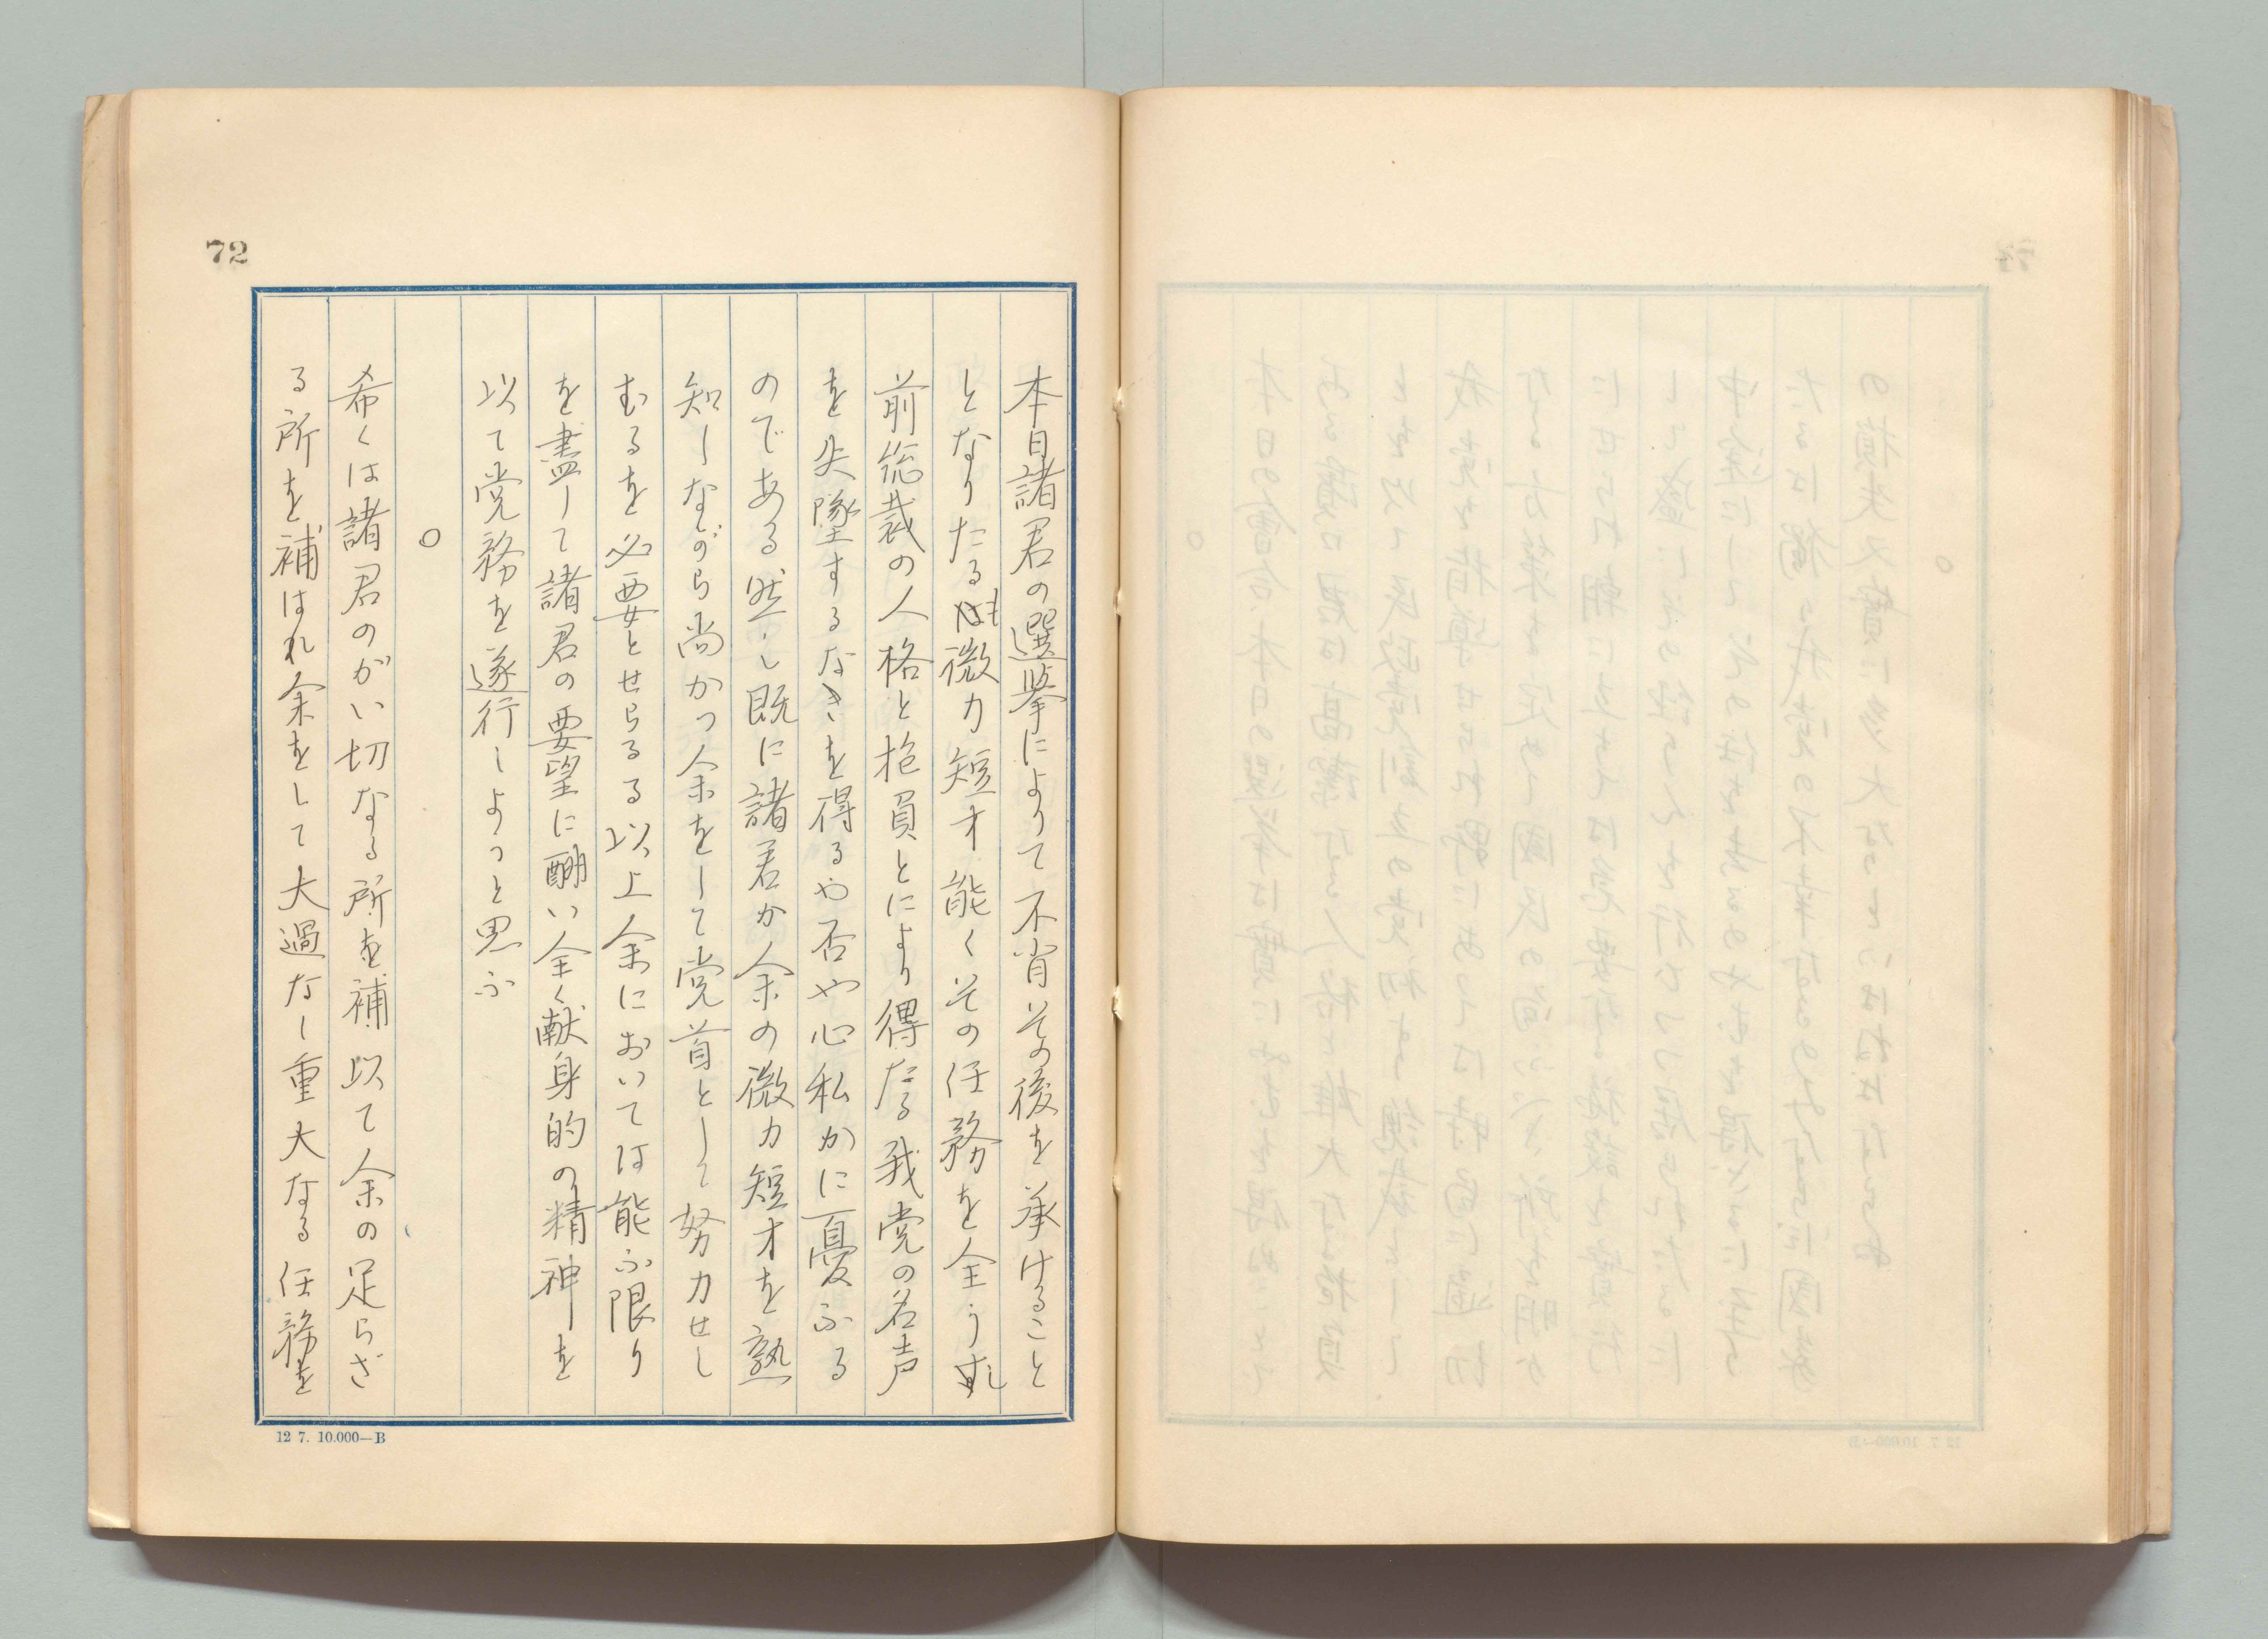 72
本日諸君の選挙によりて不肖その後を承けること
となりたるも微力短才能くその任務を全うし
前総裁の人格と抱負とにより得たる我党の名声
を失墜するなきを得るや否や心私かに憂ふる
のである然し既に諸君か余の微力短才を熟
知しながら尚かつ余をして党首として努力せし
むるを必要とせらるる以上余においては能ふ限り
を盡して諸君の要望に酬い全く献身的の精神を
以て党務を遂行しようと思ふ
○
希くは諸君のがい切なる所を補以て余の足らざ
る所を補はれ余をして大過なし重大なる任務を
12 7. 10.000—B